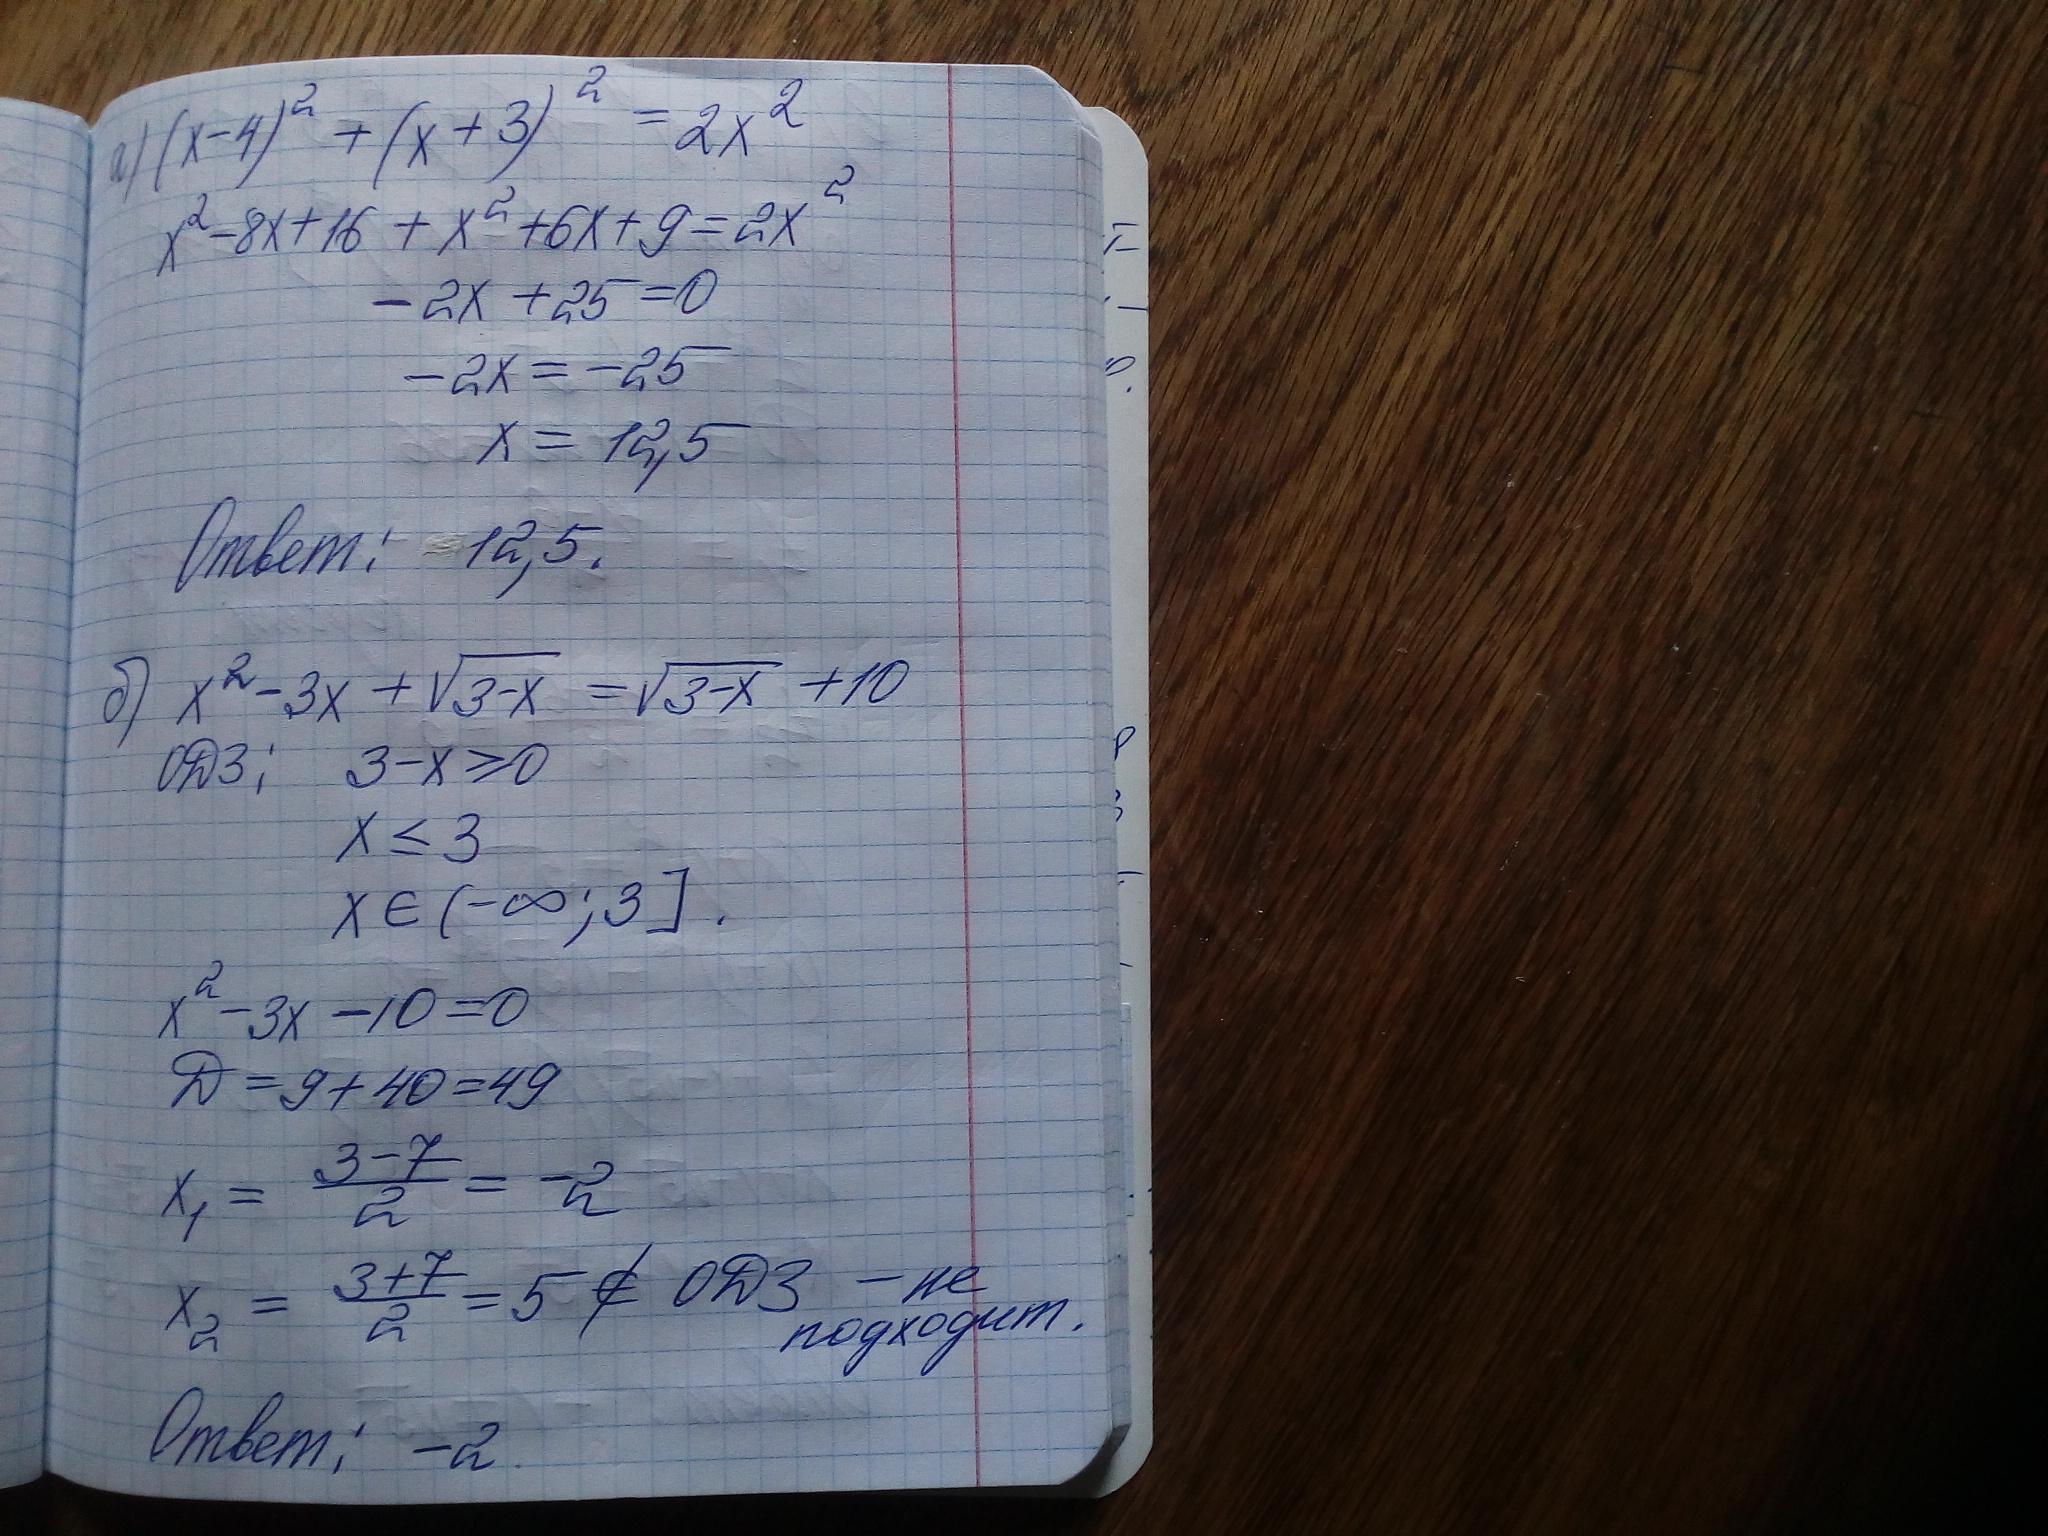 а) (x-4)² + (x+3)² = 2x²
x²-8x+16 + x²+6x+9=2x²
-2x+25=0
-2x=-25
x = 12,5
Ответ: 12,5.
б) x²-3x+√(3-x) = √(3-x) +10
ОДЗ: 3-x≥0
x≤3
x∈(-∞;3].
x²-3x-10=0
D=9+40=49
x₁ = (3-7)/2 = -2
x₂ = (3+7)/2 = 5 ∉ ОДЗ - не
подходит.
Ответ: -2.